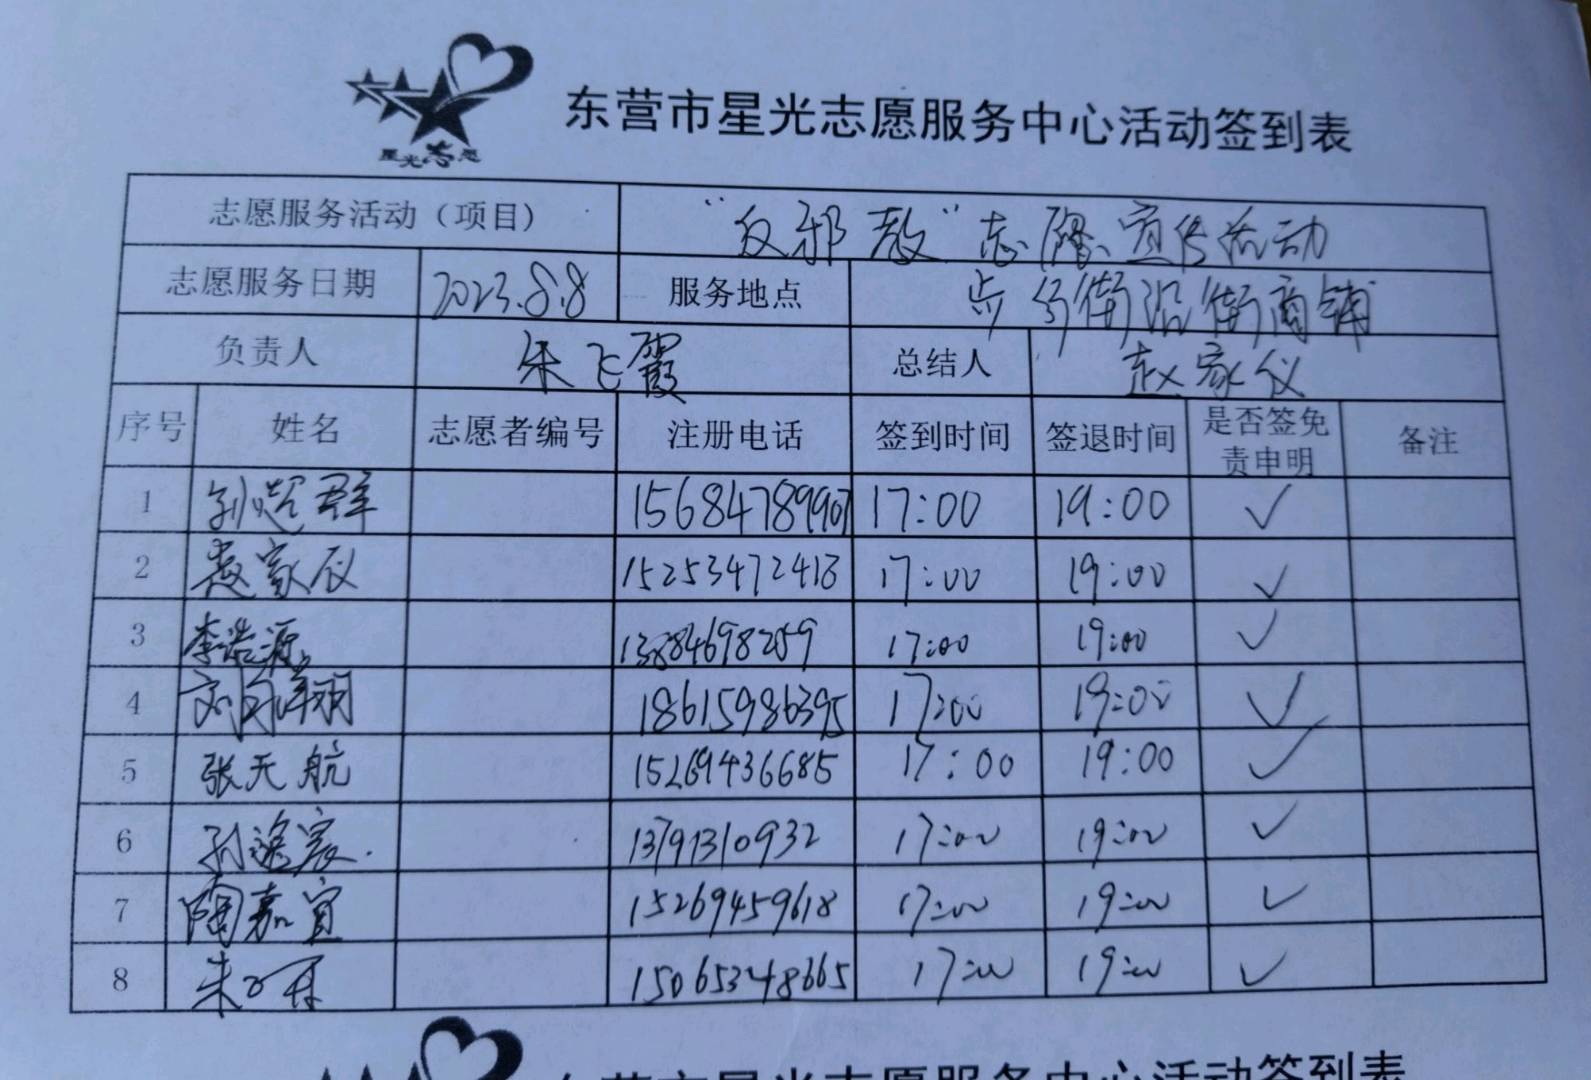 星光志愿
东营市星光志愿服务中心活动签到表
志愿服务活动（项目） “反邪教”志愿宣传活动
志愿服务日期 2023.8.8 服务地点 步行街沿街商铺
负责人 朱飞霞 总结人 赵家仪
序号 姓名 志愿者编号 注册电话 签到时间 签退时间 是否签免责申明 备注
1 孙超群 15684789907 17:00 19:00 ✓
2 赵家仪 15253472418 17:00 19:00 ✓
3 李浩源 13884698259 17:00 19:00 ✓
4 18615986395 17:00 19:00 ✓
5 张天航 15269436685 17:00 19:00 ✓
6 孙逸宸 13791310932 17:00 19:00 ✓
7 陶嘉宜 15269459618 17:00 19:00 ✓
8 15065348665 17:00 19:00 ✓
东营市星光志愿服务中心活动签到表